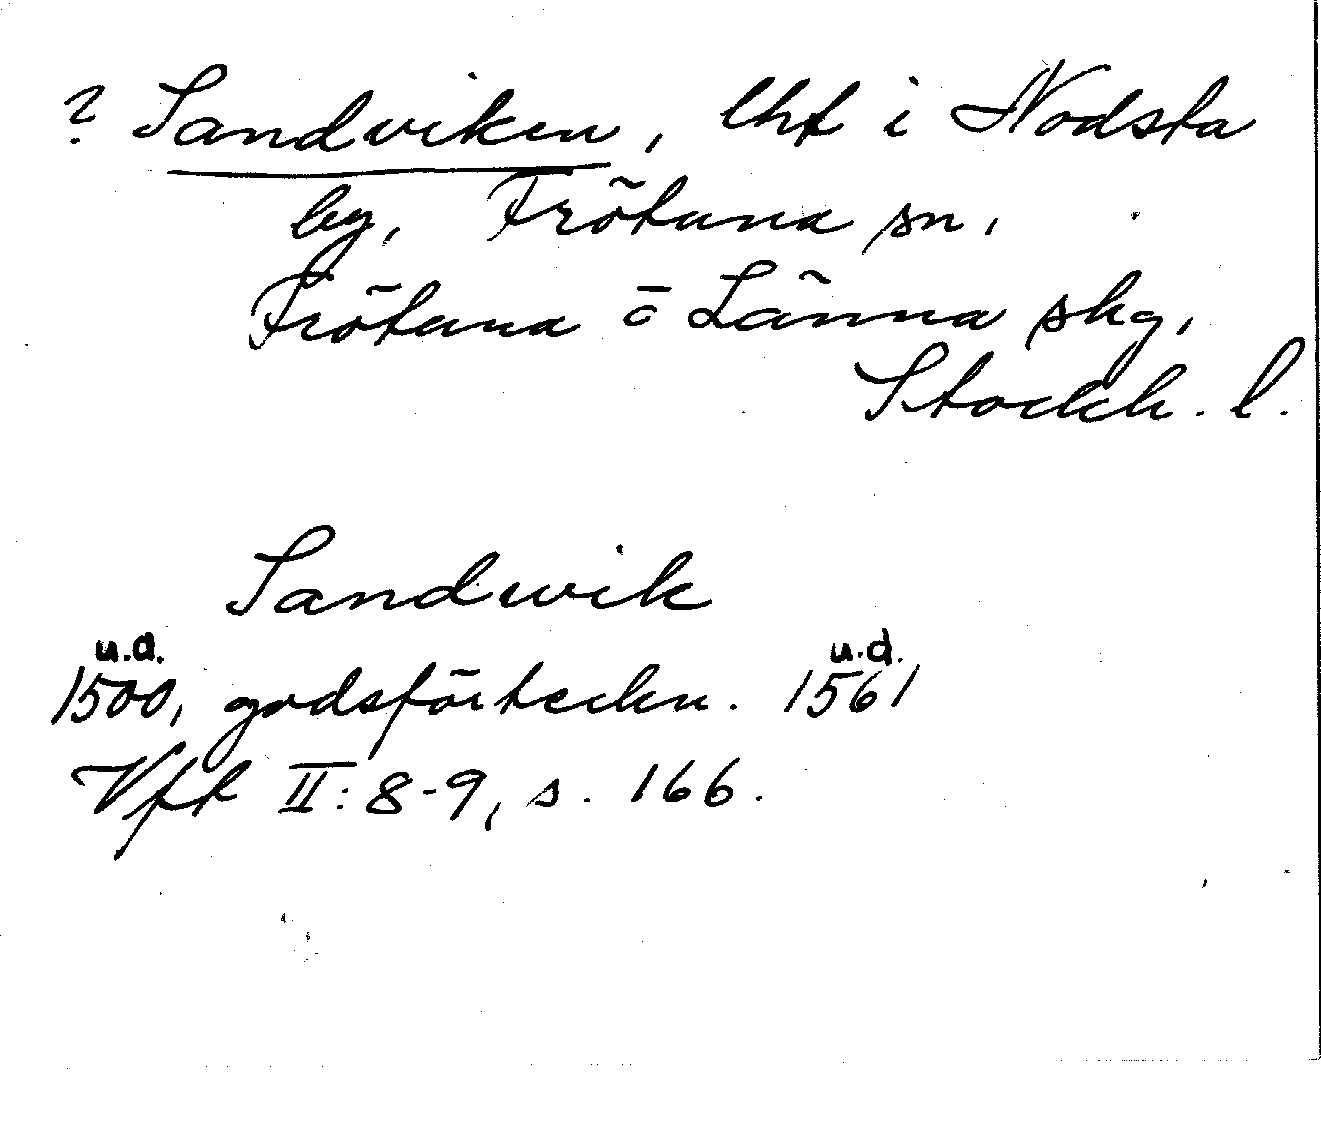 ? Sandviken, lht i Nodsta
by, Frötuna sn,
Frötuna o Länna skg,
Stockh. l.
Sandwik
u.d. u.d.
1500, godsförteckn. 1561
Vft II: 8-9, s. 166.